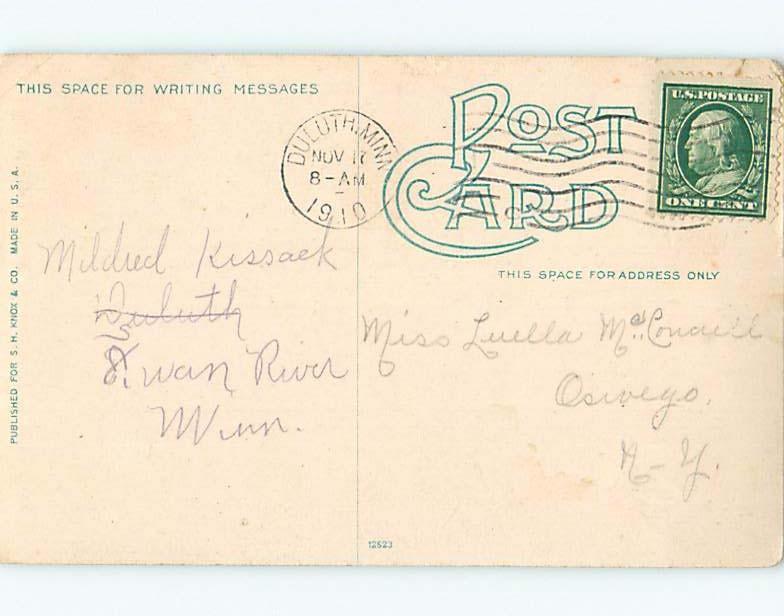 THIS SPACE FOR WRITING MESSAGES
POST
CARD
DULUTH, MINN
NOV 17
8-AM
1910
U.S. POSTAGE
ONE CENT
THIS SPACE FOR ADDRESS ONLY
Mildred Kissack
Duluth
Swan River
Minn.
Miss Luella
Oswego.
N-Y.
PUBLISHED FOR S. H. KNOX & CO. MADE IN U.S.A.
12523